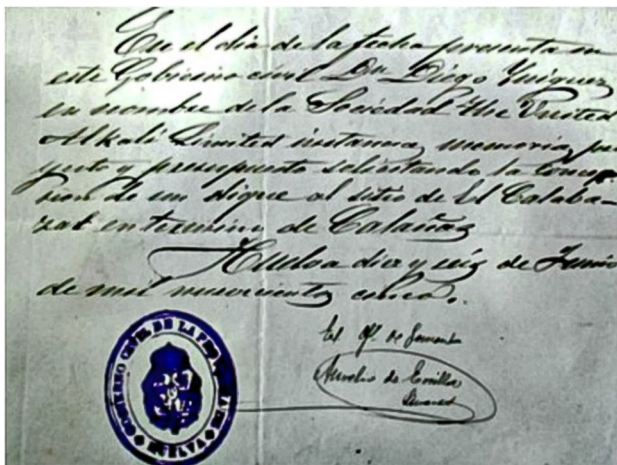 En el dia de la fecha presenta en
este Gobierno civil Dn. Diego Iñiguez
en nombre de la Sociedad The United
Alkali Limited instancia, memoria, pro
yecto y presupuesto solicitando la conce
sion de un dique al sitio de El Calaba-
zal en termino de Calañas
Huelva diez y seis de Junio
de mil novecientos cinco.
El Of. de Fomento
Aurelio de
GOBIERNO CIVIL DE LA
HUELVA